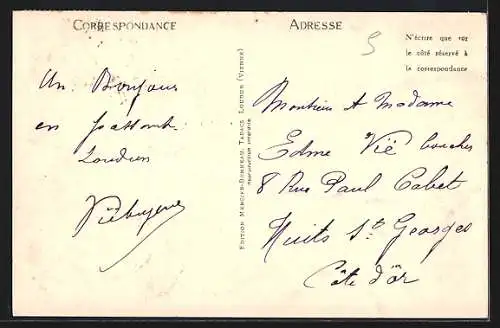 CORRESPONDANCE
ADRESSE
5
N'écrire que sur
le côté réservé à
la correspondance
Un Bonjour
en passant
Loudun
EDITION MERCIER-BONNEAU, TABACS LOUDUN (VIENNE)
Monsieur et Madame
Edme Vié boucher
8 Rue Paul Cabet
Nuits St Georges
Côte d'Or